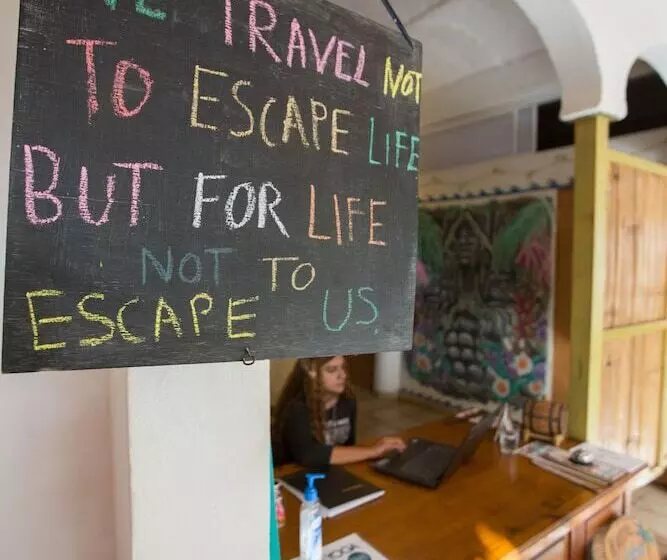 WE TRAVEL NOT
TO ESCAPE LIFE
BUT FOR LIFE
NOT TO
ESCAPE US.